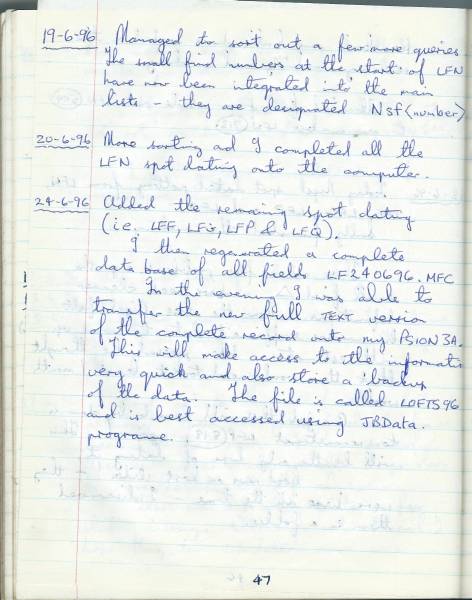 19-6-96 Managed to sort out a few more queries
The small find numbers at the start of LFN
have now been integrated into the main
lists - they are designated Nsf<number>
20-6-96 More sorting and I completed all the
LFN spot dating onto the computer.
24-6-96 Added the remaining spot dating
(i.e. LFF, LFG, LFP & LFQ).
I then regenerated a complete
data base of all fields LF240696.MFC
In the evening I was able to
transfer the new full TEXT version
of the complete record onto my PSION 3A.
This will make access to the informati
very quick and also store a backup
of the data. The file is called LOFTS96
and is best accessed using JBData.
programe.
47